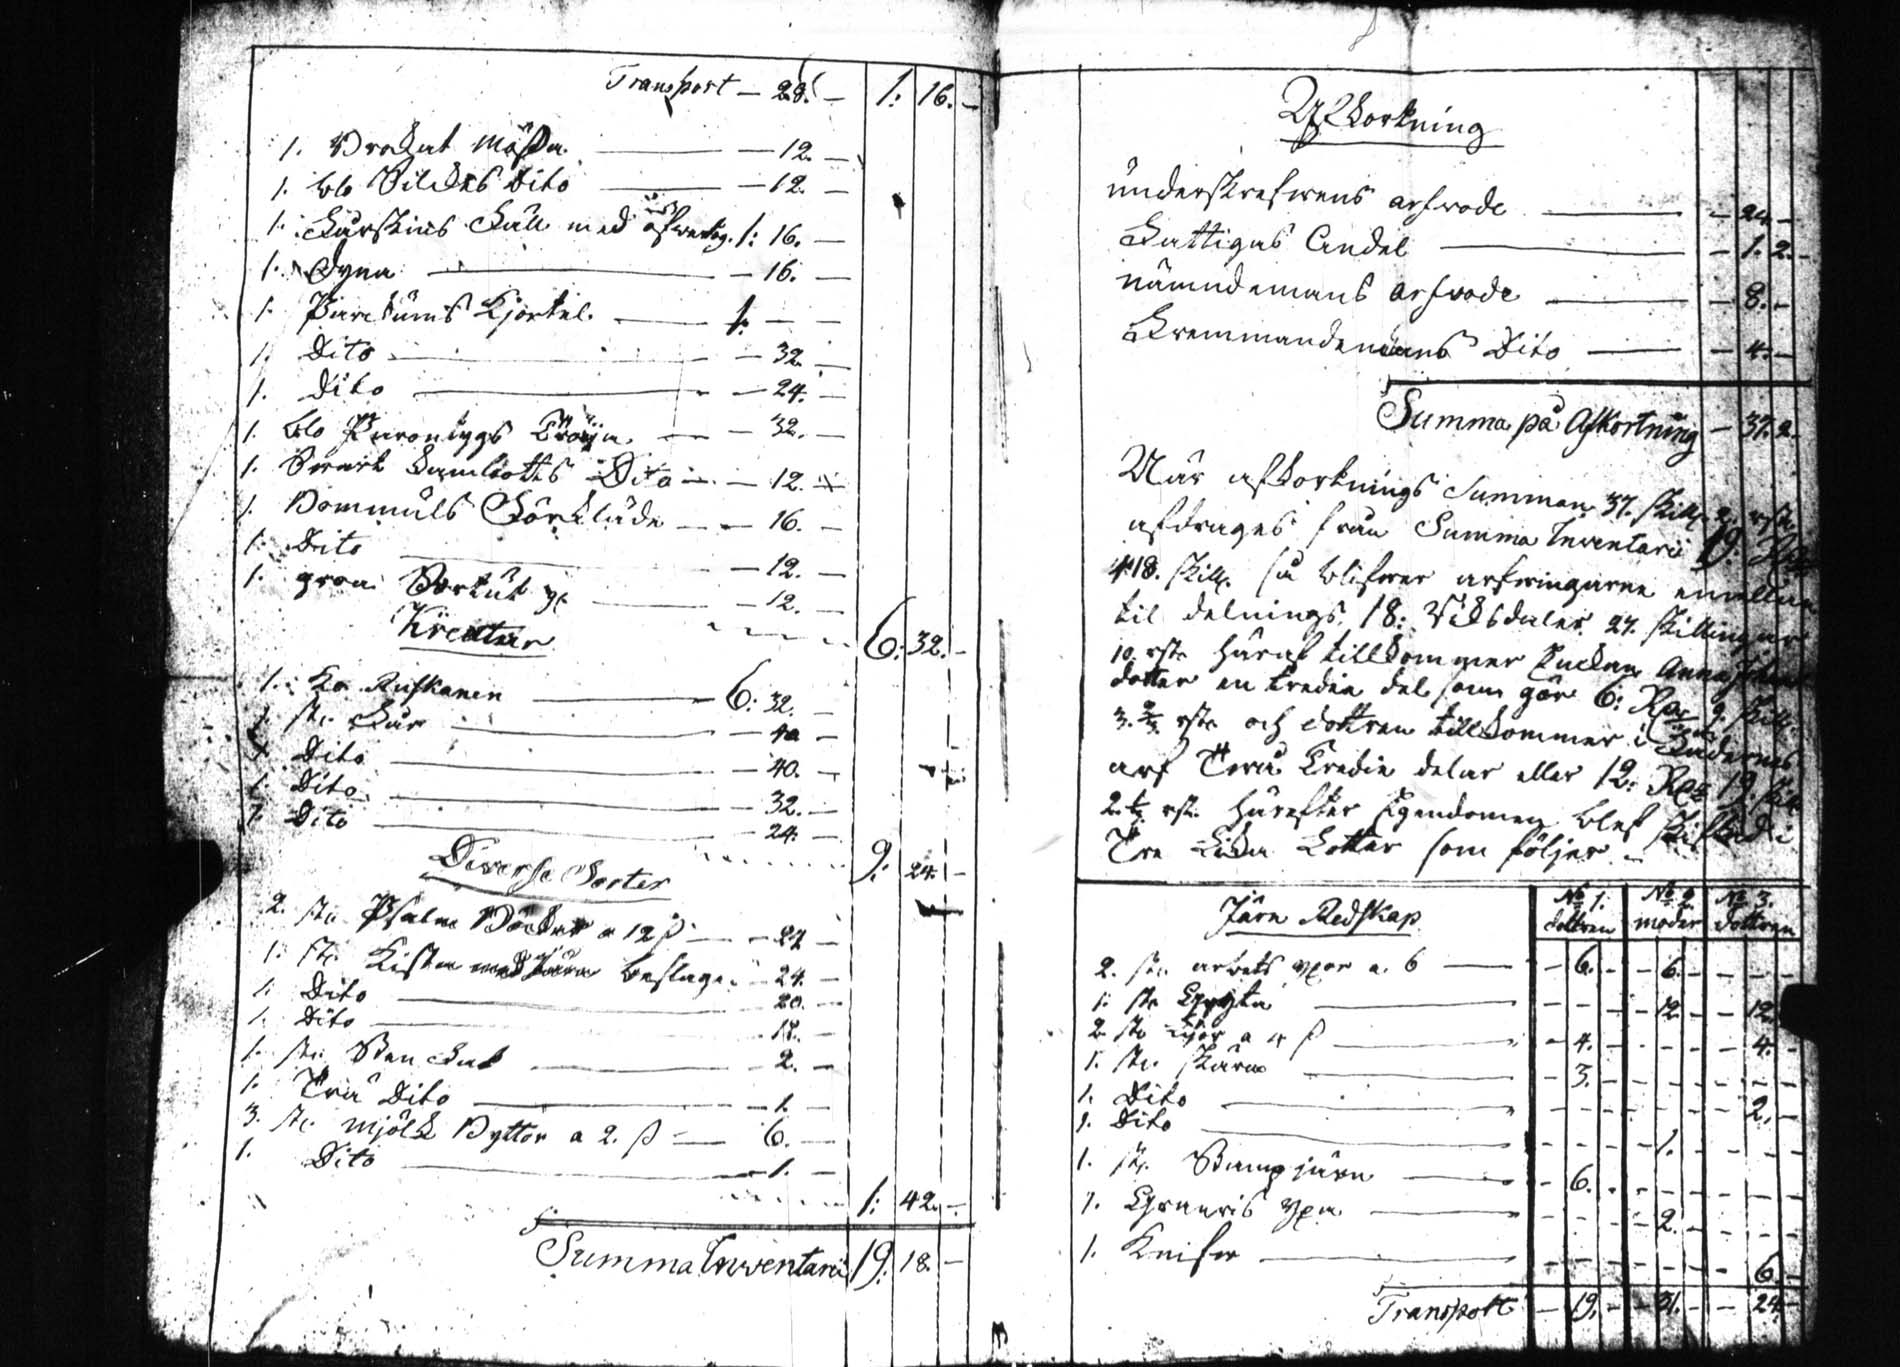 Transport — 28. — 1: 16. —
1. Brokut Mössa — 12. —
1. blo Silckes Dito — 12. —
1. Skinns med öfwertog. 1: 16. —
1. Dyna — 16. —
1. Parckums Kjortel. 1: — —
1. Dito — 32. —
1. Dito — 24. —
1. blo Tröija — 32. —
1. Swart Camlotts Dito — 12. —
1. Bommuls Förkläde — 16. —
1. Dito — 12. —
1. grön — 12. —
6: 32. —
Kreatur
1. Ko Ruskanen 6: 32. —
1. st. Får — 40 —
1. Dito — 40. —
1. Dito — 32. —
1. Dito — 24. —
9: 24. —
Diverse Sorter
2. st. Psalm Böcker a 12 ß — 24 —
1. st. Kista med järn beslagen — 24. —
1. Dito — 20. —
1. Dito — 18. —
1. st. — 2. —
1. Trä Dito — 1. —
3. st. mjölk Byttor a 2. ß — 6. —
1. Dito — 1. —
1: 42. —
Summa Inventarii 19. 18. —
Afkortning
underskrefwens arfwode — 24 —
Fattigas Andel — 1. 2. —
nämndemans arfwode — 8. —
Fremmandemans Dito — 4. —
Summa på Afkortning — 37. 2.
När afkortnings Summan 37. skill. 2. rst.
afdrages från Summa Inventarii 19. Rdr
18. skill. så blifwer arfwingarne emellan
til delnings 18: Riksdaler 27. skillingar
10. rst. häraf tillkommer Enckan Anna Johans
dotter en tredie del som gör 6: Rdr 9. skill.
3. rst. och dottren tillkommer i
arf Twå Tredie delar eller 12: Rdr 19. skill.
2. rst. härefter Egendomen blef skiftad i
Tre Lika Lotter som följer
Järn Redskap № 1. dottren № 2. moder № 3. dottren
2. st. arbets yxor a. 6 — 6. — 6. — — —
1. st. Gryta — — — 12 — 12.
2. st. Lijor a 4 ß — 4. — — — 4. —
1. st. Skära — 3. — — — — —
1. Dito — — — — — 2. —
1. Dito — — — 1. — — —
1. st. järn — 6. — — — — —
1. yxa — — — 2. — — —
1. Knifw — — — — — 6 —
Transport — 19. — 21. — 24. —